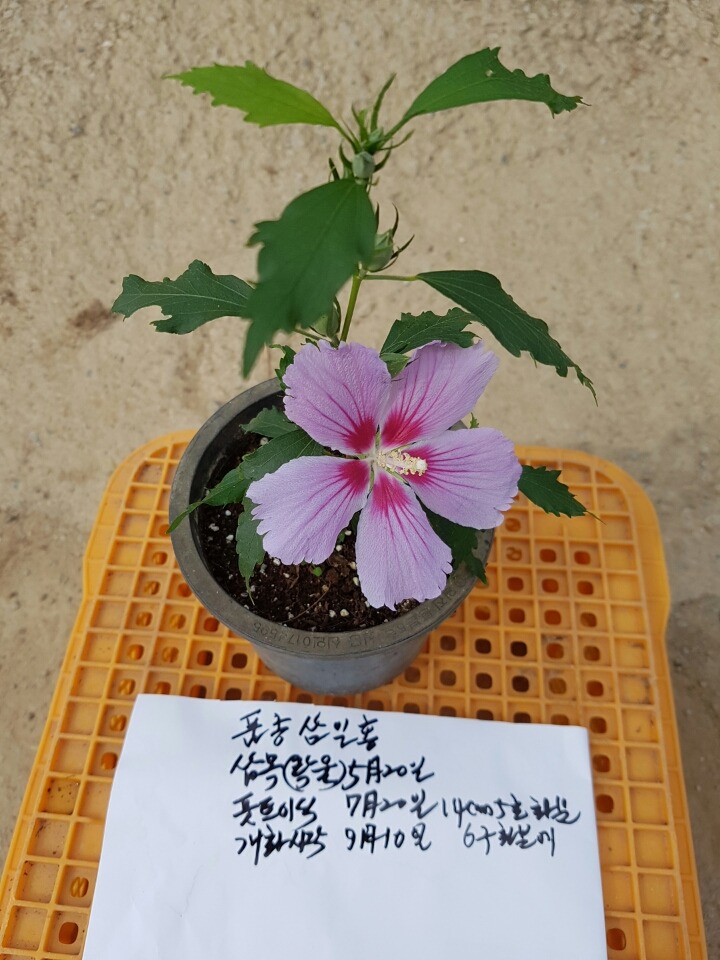 품종 삼일홍
삽목(광울)5月20일
폿트이식 7月20일 14cm5호화분
개화시작 9月10일 6구화분에